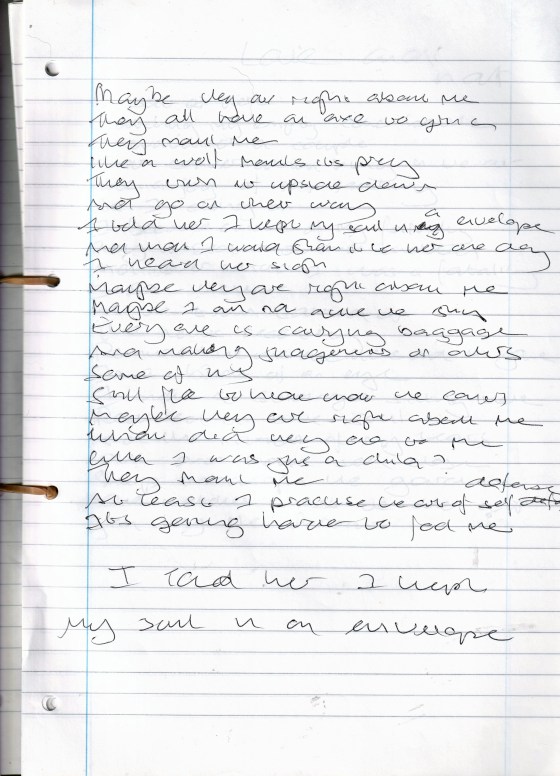 Maybe they are right about me
They all have an axe to grind
They maul me
like a wolf mauls its prey
They turn it upside down
And go on their way
I told her I kept my soul in a envelope
And that I would show it to her one day
I heard her sigh
Maybe they are right about me
Maybe I am not above the sun
Every one is carrying baggage
And making judgements on others
Some of us
Still like to hide under the covers
Maybe they are right about me
What did they do to me
When I was just a child?
They maul me
At least I practise the art of self defense
Its getting harder to fool me
I told her I kept
My soul in an envelope